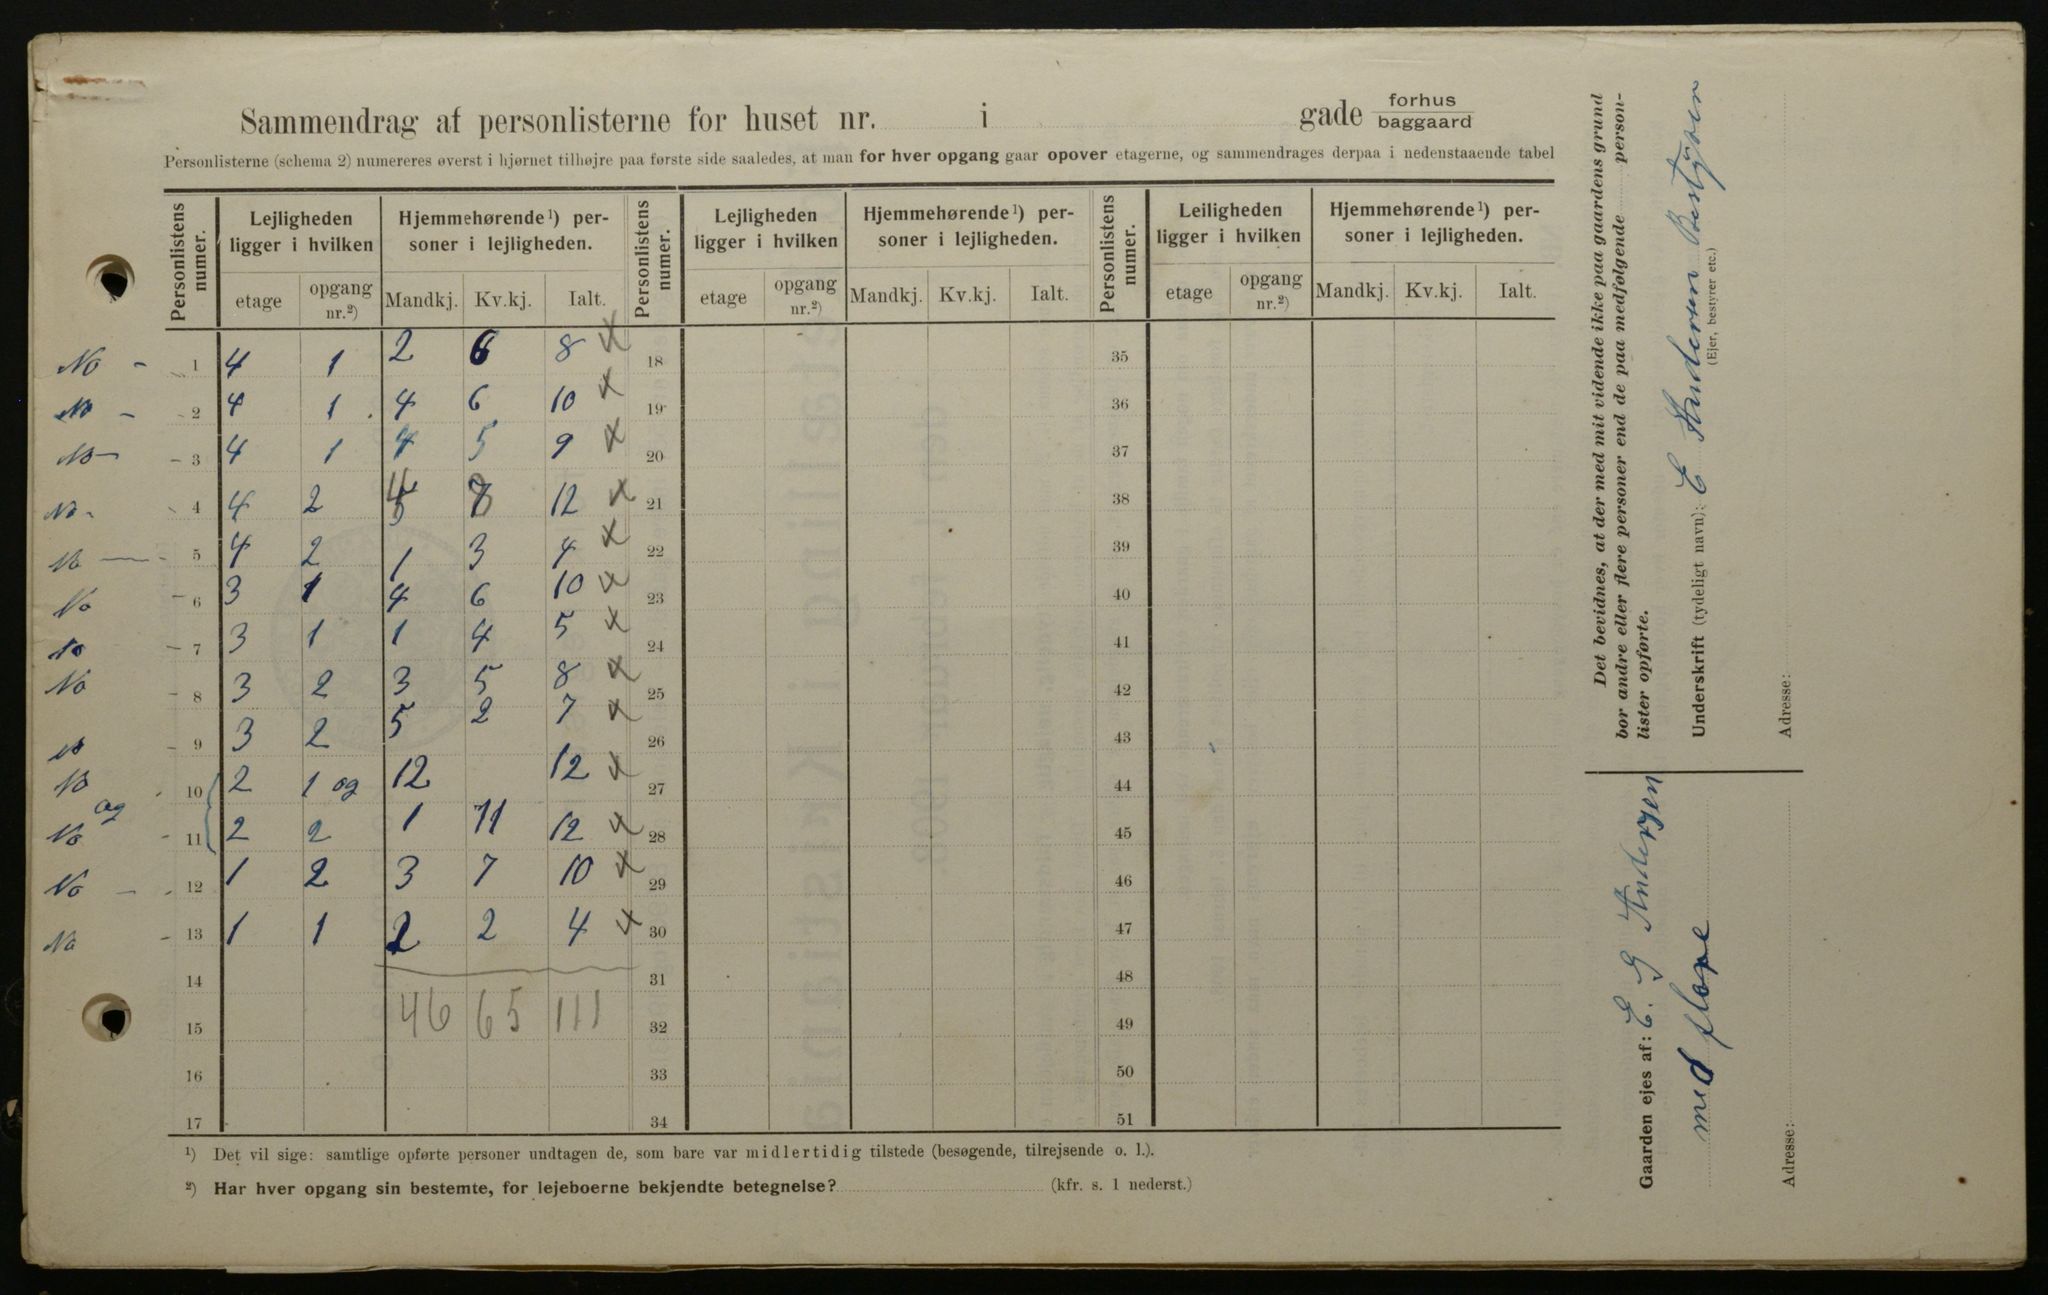 Sammendrag af personlisterne for huset nr. i gade forhus baggaard
Personlisterne (schema 2) numereres øverst i hjørnet tilhøjre paa første side saaledes, at man for hver opgang gaar opover etagerne, og sammendrages derpaa i nedenstaaende tabel
Personlistens numer. Lejligheden ligger i hvilken Hjemmehørende ¹) personer i lejligheden. Personlistens numer. Lejligheden ligger i hvilken Hjemmehørende ¹) personer i lejligheden. Personlistens numer. Leiligheden ligger i hvilken Hjemmehørende ¹) personer i lejligheden.
etage opgang nr.²) Mandkj. Kv.kj. Ialt. etage opgang nr.²) Mandkj. Kv.kj. Ialt. etage opgang nr.²) Mandkj. Kv.kj. Ialt.
No - 1 4 1 2 6 8 x 18 35
No - 2 4 1 4 6 10 x 19 36
No - 3 4 1 4 5 9 x 20 37
No - 4 4 2 12 x 21 38
No - 5 4 2 1 3 4 x 22 39
No 6 3 1 4 6 10 x 23 40
No 7 3 1 1 4 5 x 24 41
No 8 3 2 3 5 8 x 25 42
No 9 3 2 5 2 7 x 26 43
No 10 2 1 og 12 12 x 27 44
og
No 11 2 2 1 11 12 x 28 45
No - 12 1 2 3 7 10 x 29 46
No - 13 1 1 2 2 4 x 30 47
14 31 48
46 65 111
15 32 49
16 33 50
17 34 51
¹) Det vil sige: samtlige opførte personer undtagen de, som bare var midlertidig tilstede (besøgende, tilrejsende o. l.).
²) Har hver opgang sin bestemte, for lejeboerne bekjendte betegnelse? (kfr. s. 1 nederst.)
Det bevidnes, at der med mit vidende ikke paa gaardens grund
bor andre eller flere personer end de paa medfølgende person-
lister opførte.
Underskrift (tydeligt navn): E Andersen Bestyrer
(Ejer, bestyrer etc.)
Adresse:
Gaarden ejes af: E. G Andersen
med flere
Adresse: